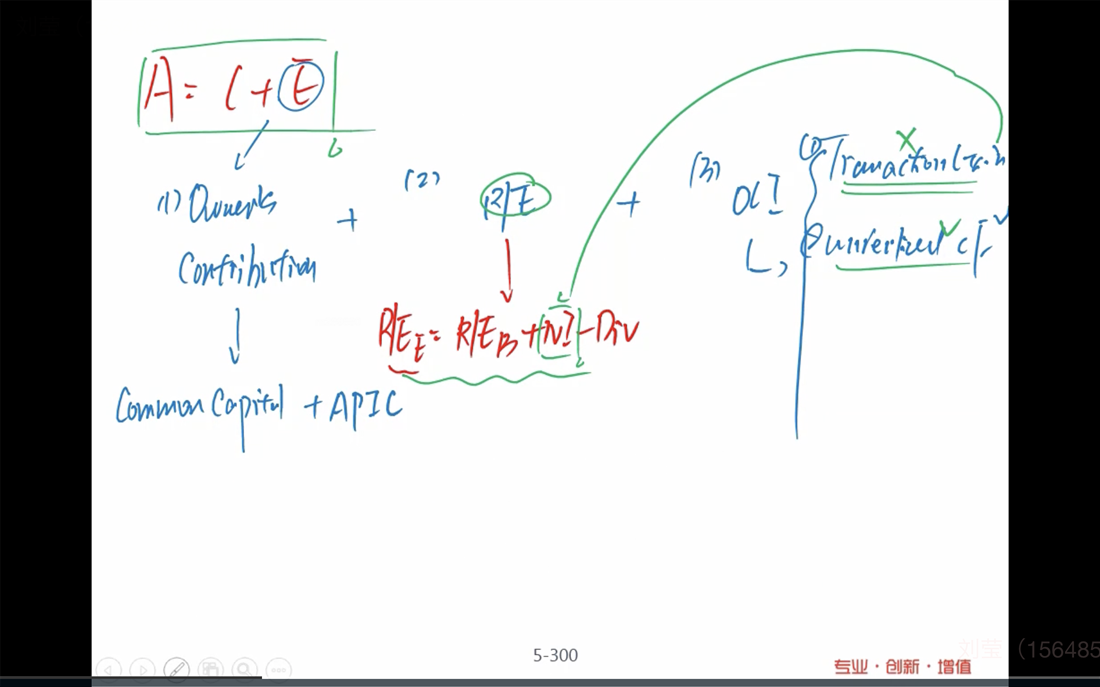 A = L + E
(1) Owners
Contribution
+
(2)
R/E
+
(3) OCI
① Transaction
② unrealized
R/E_E = R/E_B + NI - Div
Common Capital + APIC
5-300
(156485
专业·创新·增值